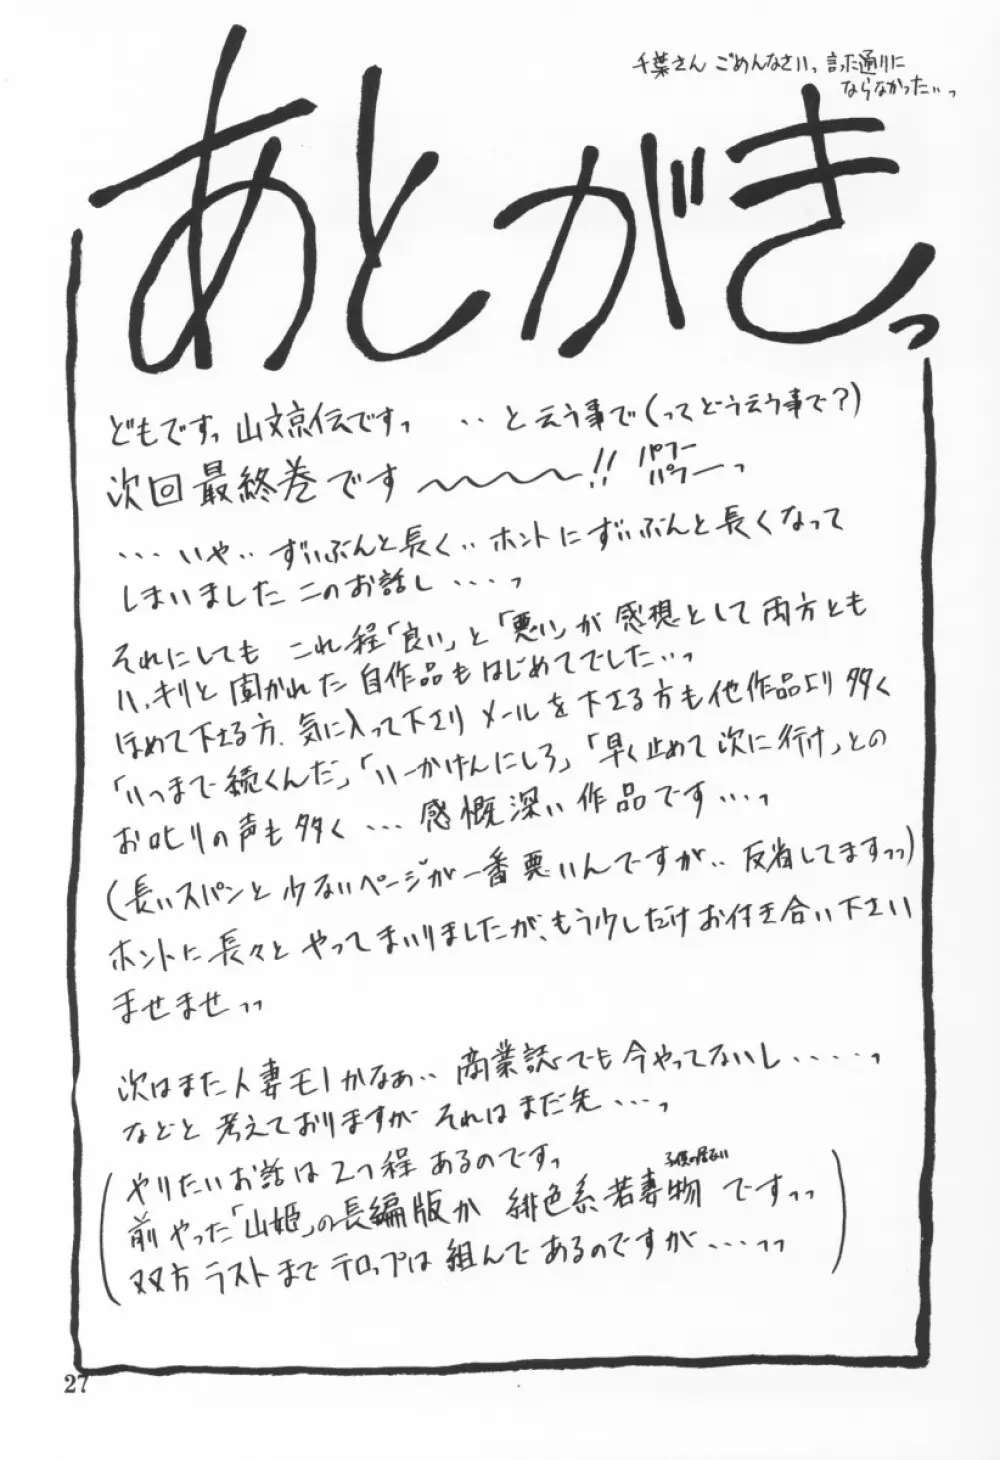 千葉さん ごめんなさいっ 言った通りに
ならなかった‥っ
あとがきっ
どもですっ 山文京伝ですっ ‥と云う事で(ってどう云う事で?)
次回最終巻です〜〜〜!! パフーパフーっ
・・・いや‥ずいぶんと長く‥ホントにずいぶんと長くなって
しまいましたこのお話し・・・・っ
それにしても これ程「良い」と「悪い」が感想として両方とも
ハッキリと聞かれた自作品もはじめてでした‥っ
ほめて下さる方、気に入って下さりメールを下さる方も他作品より多く
「いつまで続くんだ」「いーかげんにしろ」「早く止めて次に行け」との
お叱りの声も多く・・・感慨深い作品です・・・っ
(長いスパンと少ないページが一番悪いんですが‥反省してますっっ)
ホントに長々とやってまいりましたが、もう少しだけお付き合い下さい
ませませっっ
次はまた人妻モノかなぁ‥商業誌でも今やってないし・・・・・っ
などと考えておりますがそれはまだ先・・・っ
(やりたいお話は2つ程あるのですっ
前やった「山姫」の長編版か 緋色系若妻物ですっっ
子供の居ない
双方ラストまでテロップは組んであるのですが・・・っっ)
27